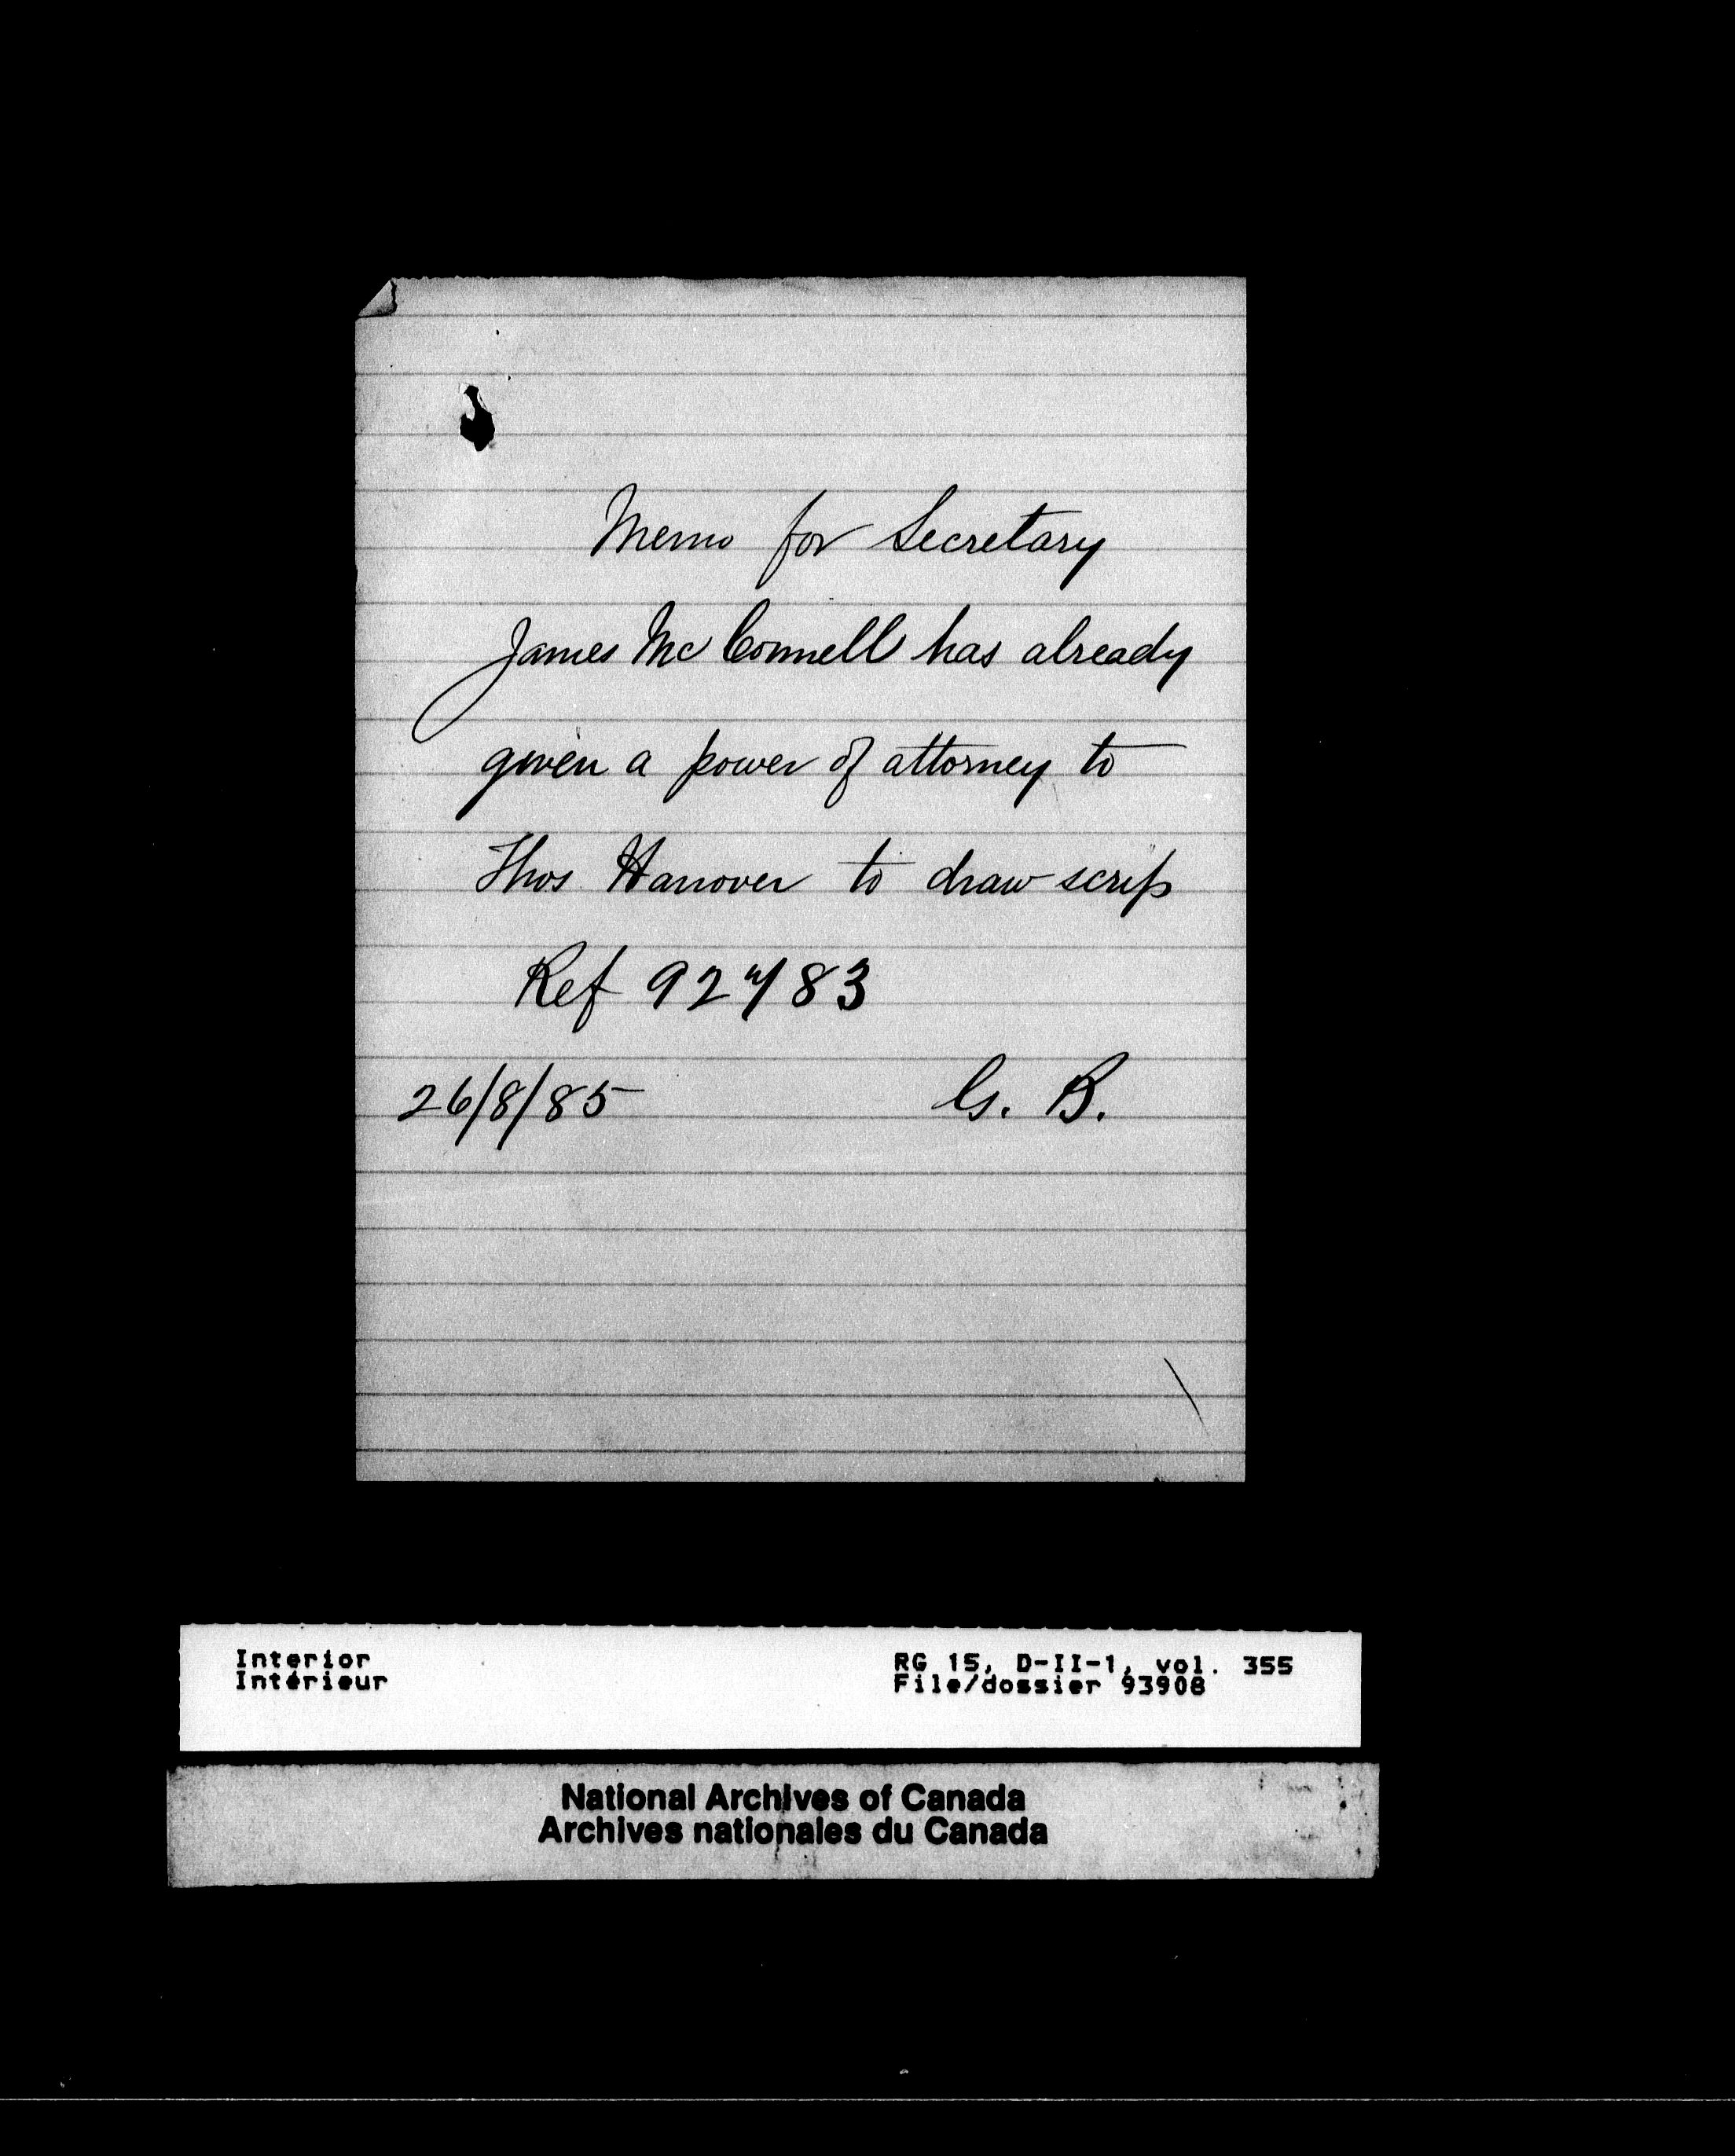 Memo for Secretary
James McConnell has already
given a power of attorney to
Thos Hanover to draw scrip
Ref 92783
26/8/85 G. B.
Interior RG 15, D-II-1, vol. 355
Intérieur File/dossier 93908
National Archives of Canada
Archives nationales du Canada